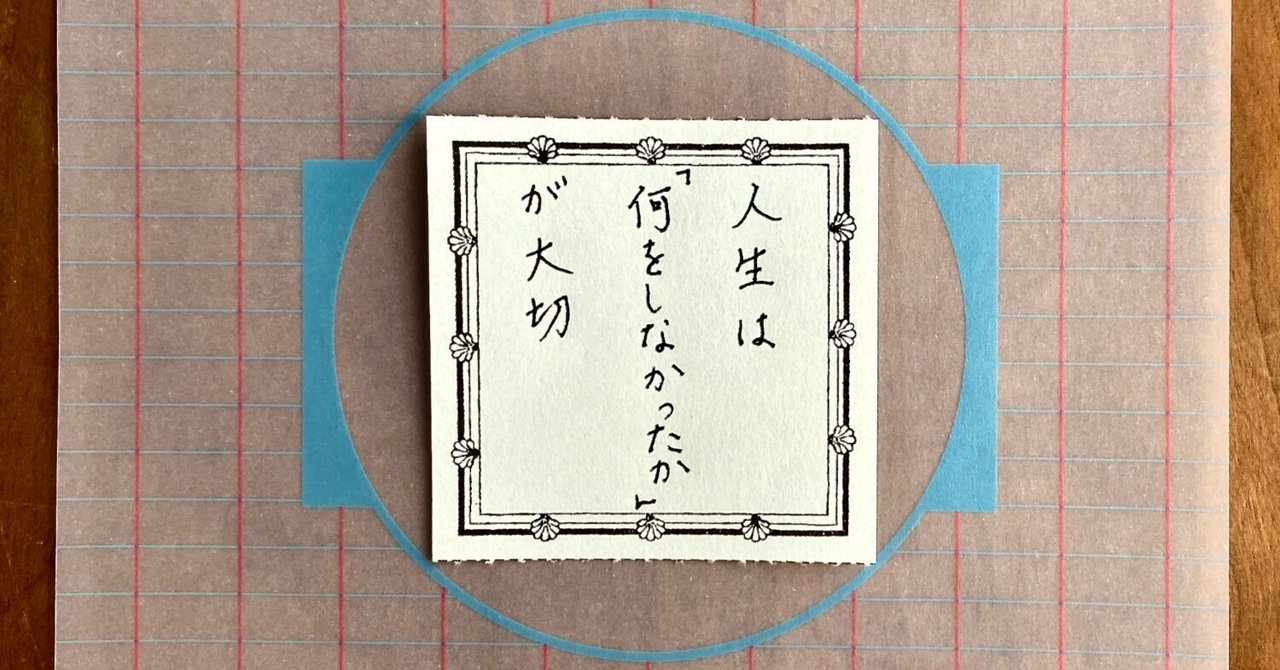 人生は
「何をしなかったか」
が大切